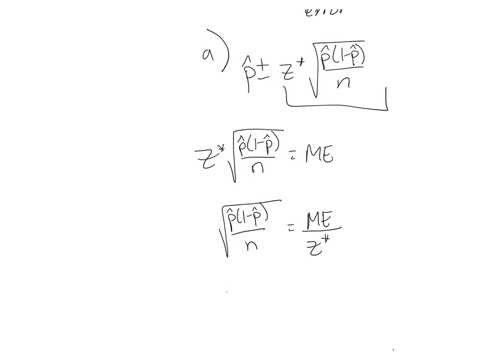 a) p̂ ± z* √(p̂(1-p̂)/n)
z* √(p̂(1-p̂)/n) = ME
√(p̂(1-p̂)/n) = ME/z*